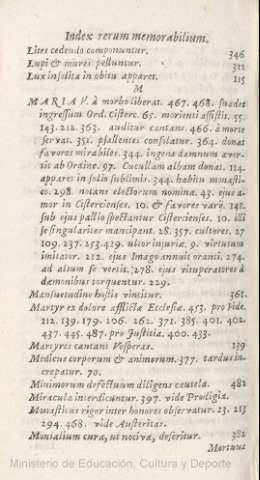 Index rerum memorabilium.
Lites cedendo componuntur. 346
Lupi & mures pelluntur. 322
Lux insolita in obitu apparet. 115
M
MARIA V. à morbo liberat. 467. 468. suadet
ingressum Ord. Cisterc. 65. morienti assistit. 55.
143. 212. 363. auditur cantans. 466. à morte
servat. 351. psallentes consolatur. 364. donat
favores mirabiles. 344. ingens damnum aver-
tit ab Ordine. 97. Cucullam albam donat. 114.
apparet in solio sublimis. 344. habitu monasti-
co. 298. notans electorum nomina. 43. ejus a-
mor in Cistercienses. 10. & favores varij. 148.
sub ejus pallio spectantur Cistercienses. 10. illi
se singulariter mancipant. 28. 357. cultores. 27
109. 237. 253. 429. ultor injuriæ. 9. virtutum
imitator. 212. ejus Imago annuit oranti. 274.
ad altum se vertit. 278. ejus vituperatores à
dæmonibus torquentur. 229.
Mansuetudine hostis vincitur. 361.
Martyr ex dolore afflictæ Ecclesiæ. 453. pro Fide.
112. 139. 179. 206. 261. 371. 385. 401. 402.
437. 445. 487. pro Justitia. 400. 433.
Martyres cantant Vesperas. 139
Medicus corporum & animorum. 377. tardus in-
crepatur. 70.
Minimorum defectuum diligens cautela. 482
Miracula interdicuntur. 397. vide Prodigia.
Monasticus rigor inter honores observatur. 23. 213
294. 468. vide Austeritas.
Monialium cura, ut nociva, deseritur. 382
Mortuus
Ministerio de Educación, Cultura y Deporte